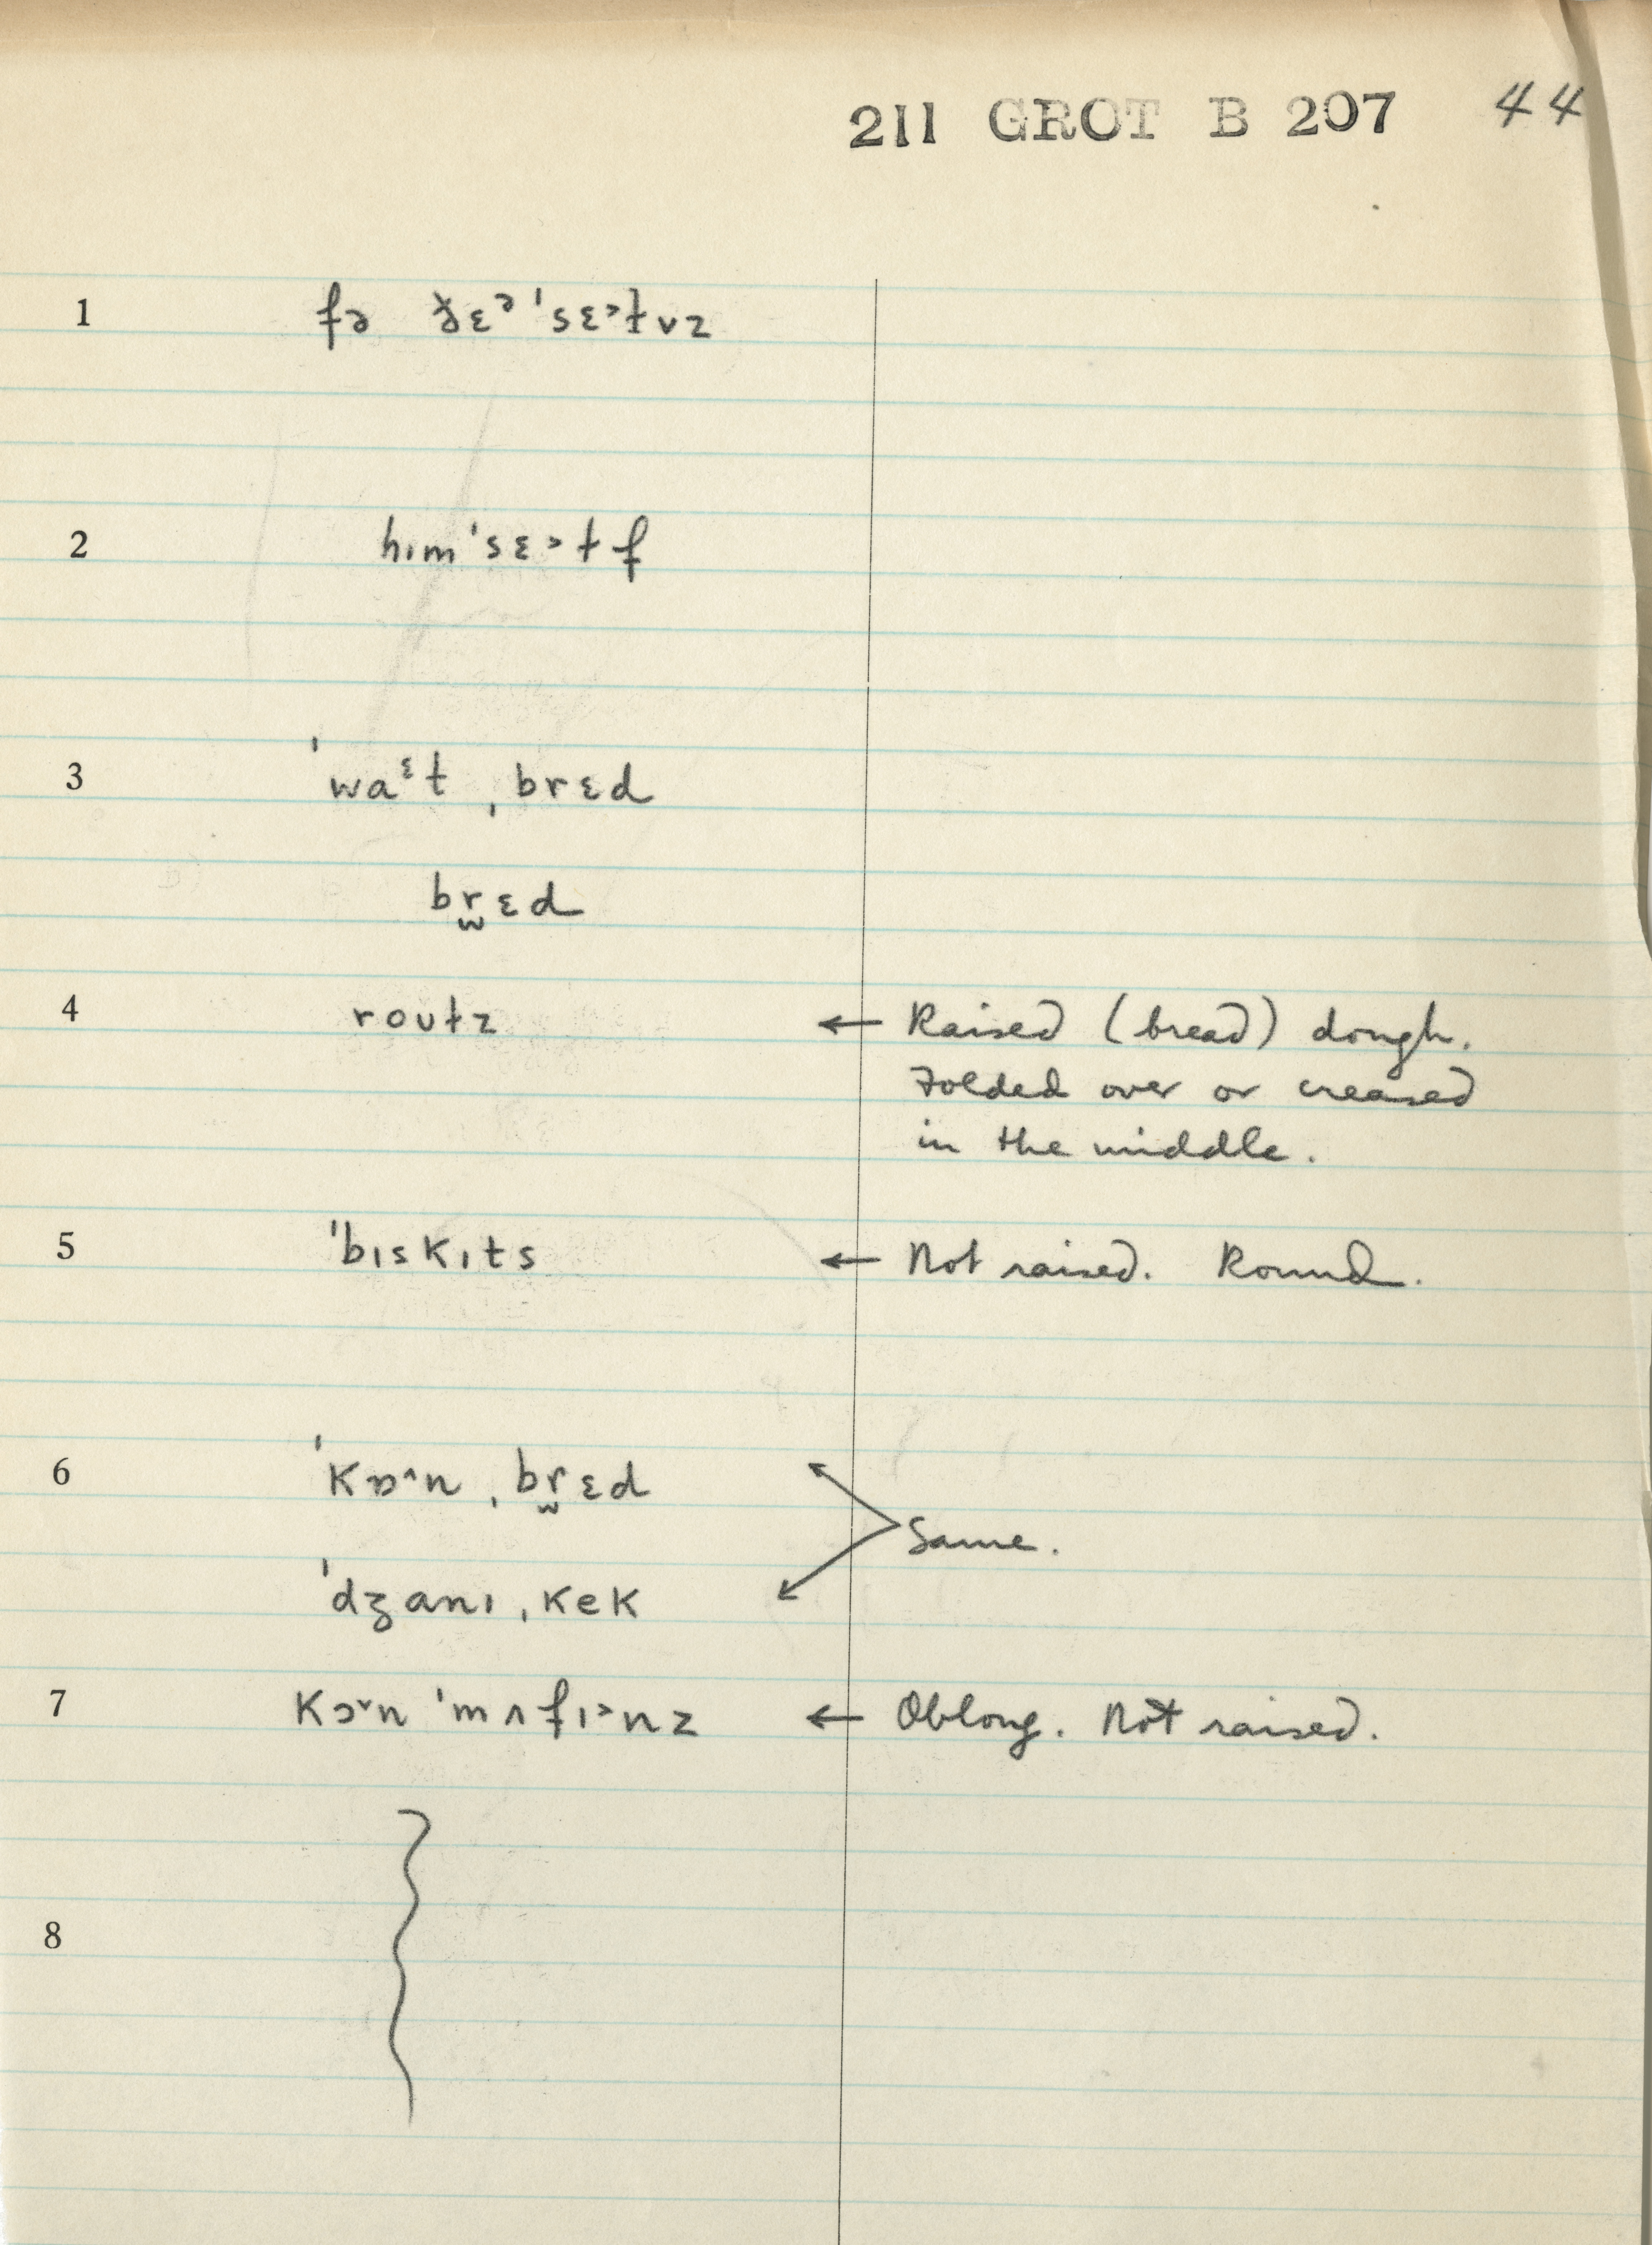 211 GROT B 207 44
1 fə ðɛᵊ ˈsɛ˃ɫvz
2 hɪmˈsɛ˃ɫf
3 ˈwaᵋt ˌbrɛd
br̫ɛd
4 roʊɫz ← Raised (bread) dough.
Folded over or creased
in the middle.
5 ˈbɪskɪts ← Not raised. Round.
6 ˈkɒ˄n ˌbr̫ɛd
Same.
ˈdʒanɪ ˌkek
7 kɔ˅n ˈmʌfɪ˃nz ← Oblong. Not raised.
8